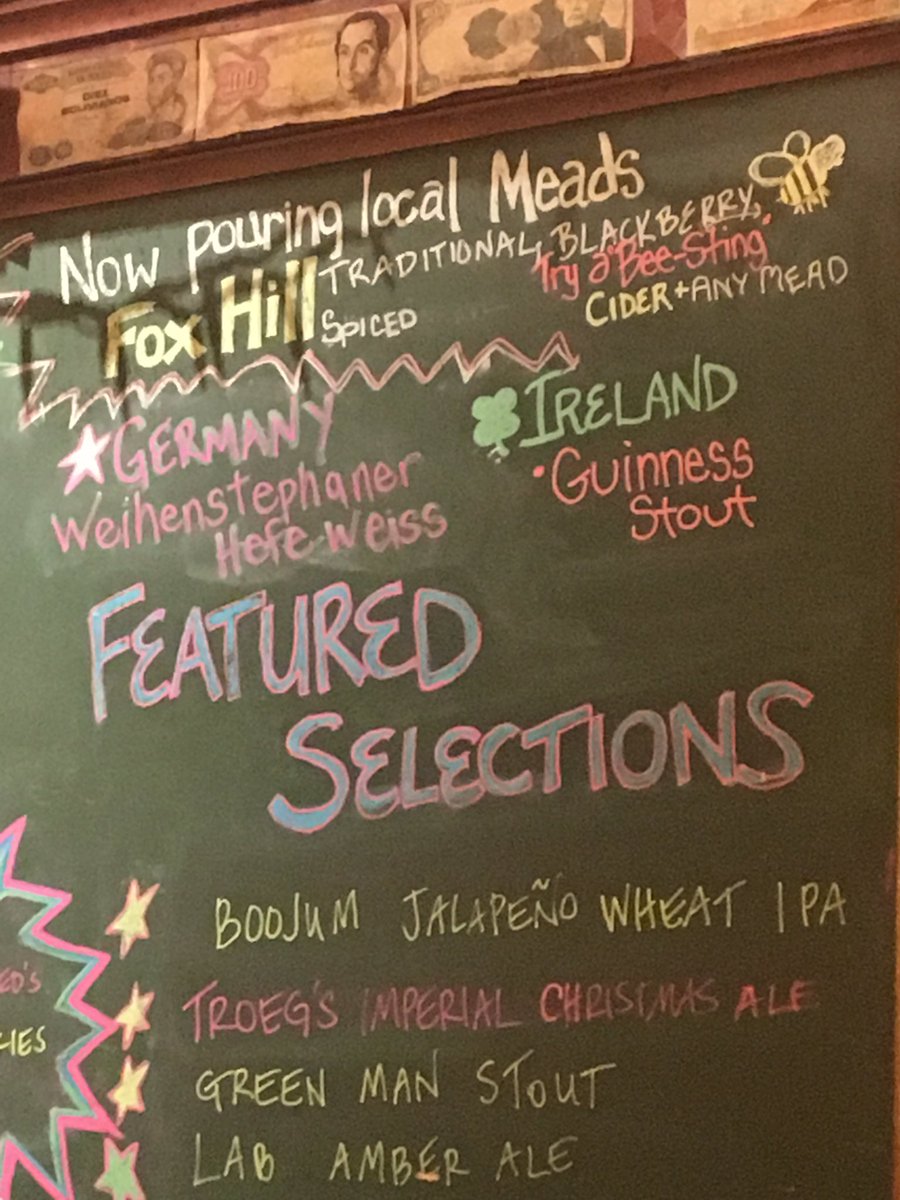 100
Now pouring local Meads
Fox Hill TRADITIONAL, BLACKBERRY,
SPICED
Try a "Bee-Sting"
CIDER + ANY MEAD
GERMANY
Weihenstephaner
Hefe-Weiss
IRELAND
• Guinness
Stout
FEATURED
SELECTIONS
BOOJUM JALAPEÑO WHEAT IPA
TROEG'S IMPERIAL CHRISTMAS ALE
GREEN MAN STOUT
LAB AMBER ALE